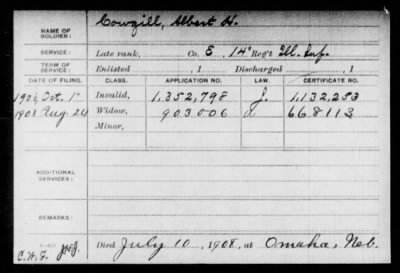 NAME OF SOLDIER: Cowgill, Albert H.
SERVICE: Late rank, Co. E, 14" Reg't Ill. Inf.
TERM OF SERVICE: Enlisted , 1 Discharged , 1
DATE OF FILING. CLASS. APPLICATION NO. LAW. CERTIFICATE NO.
1906, Oct. 1" Invalid, 1,352,798 J. 1,132,253
1908 Aug. 24 Widow, 903,006 a 668113
Minor,
ADDITIONAL SERVICES:
REMARKS:
C.W.F. Died July 10, 1908, at Omaha, Neb.